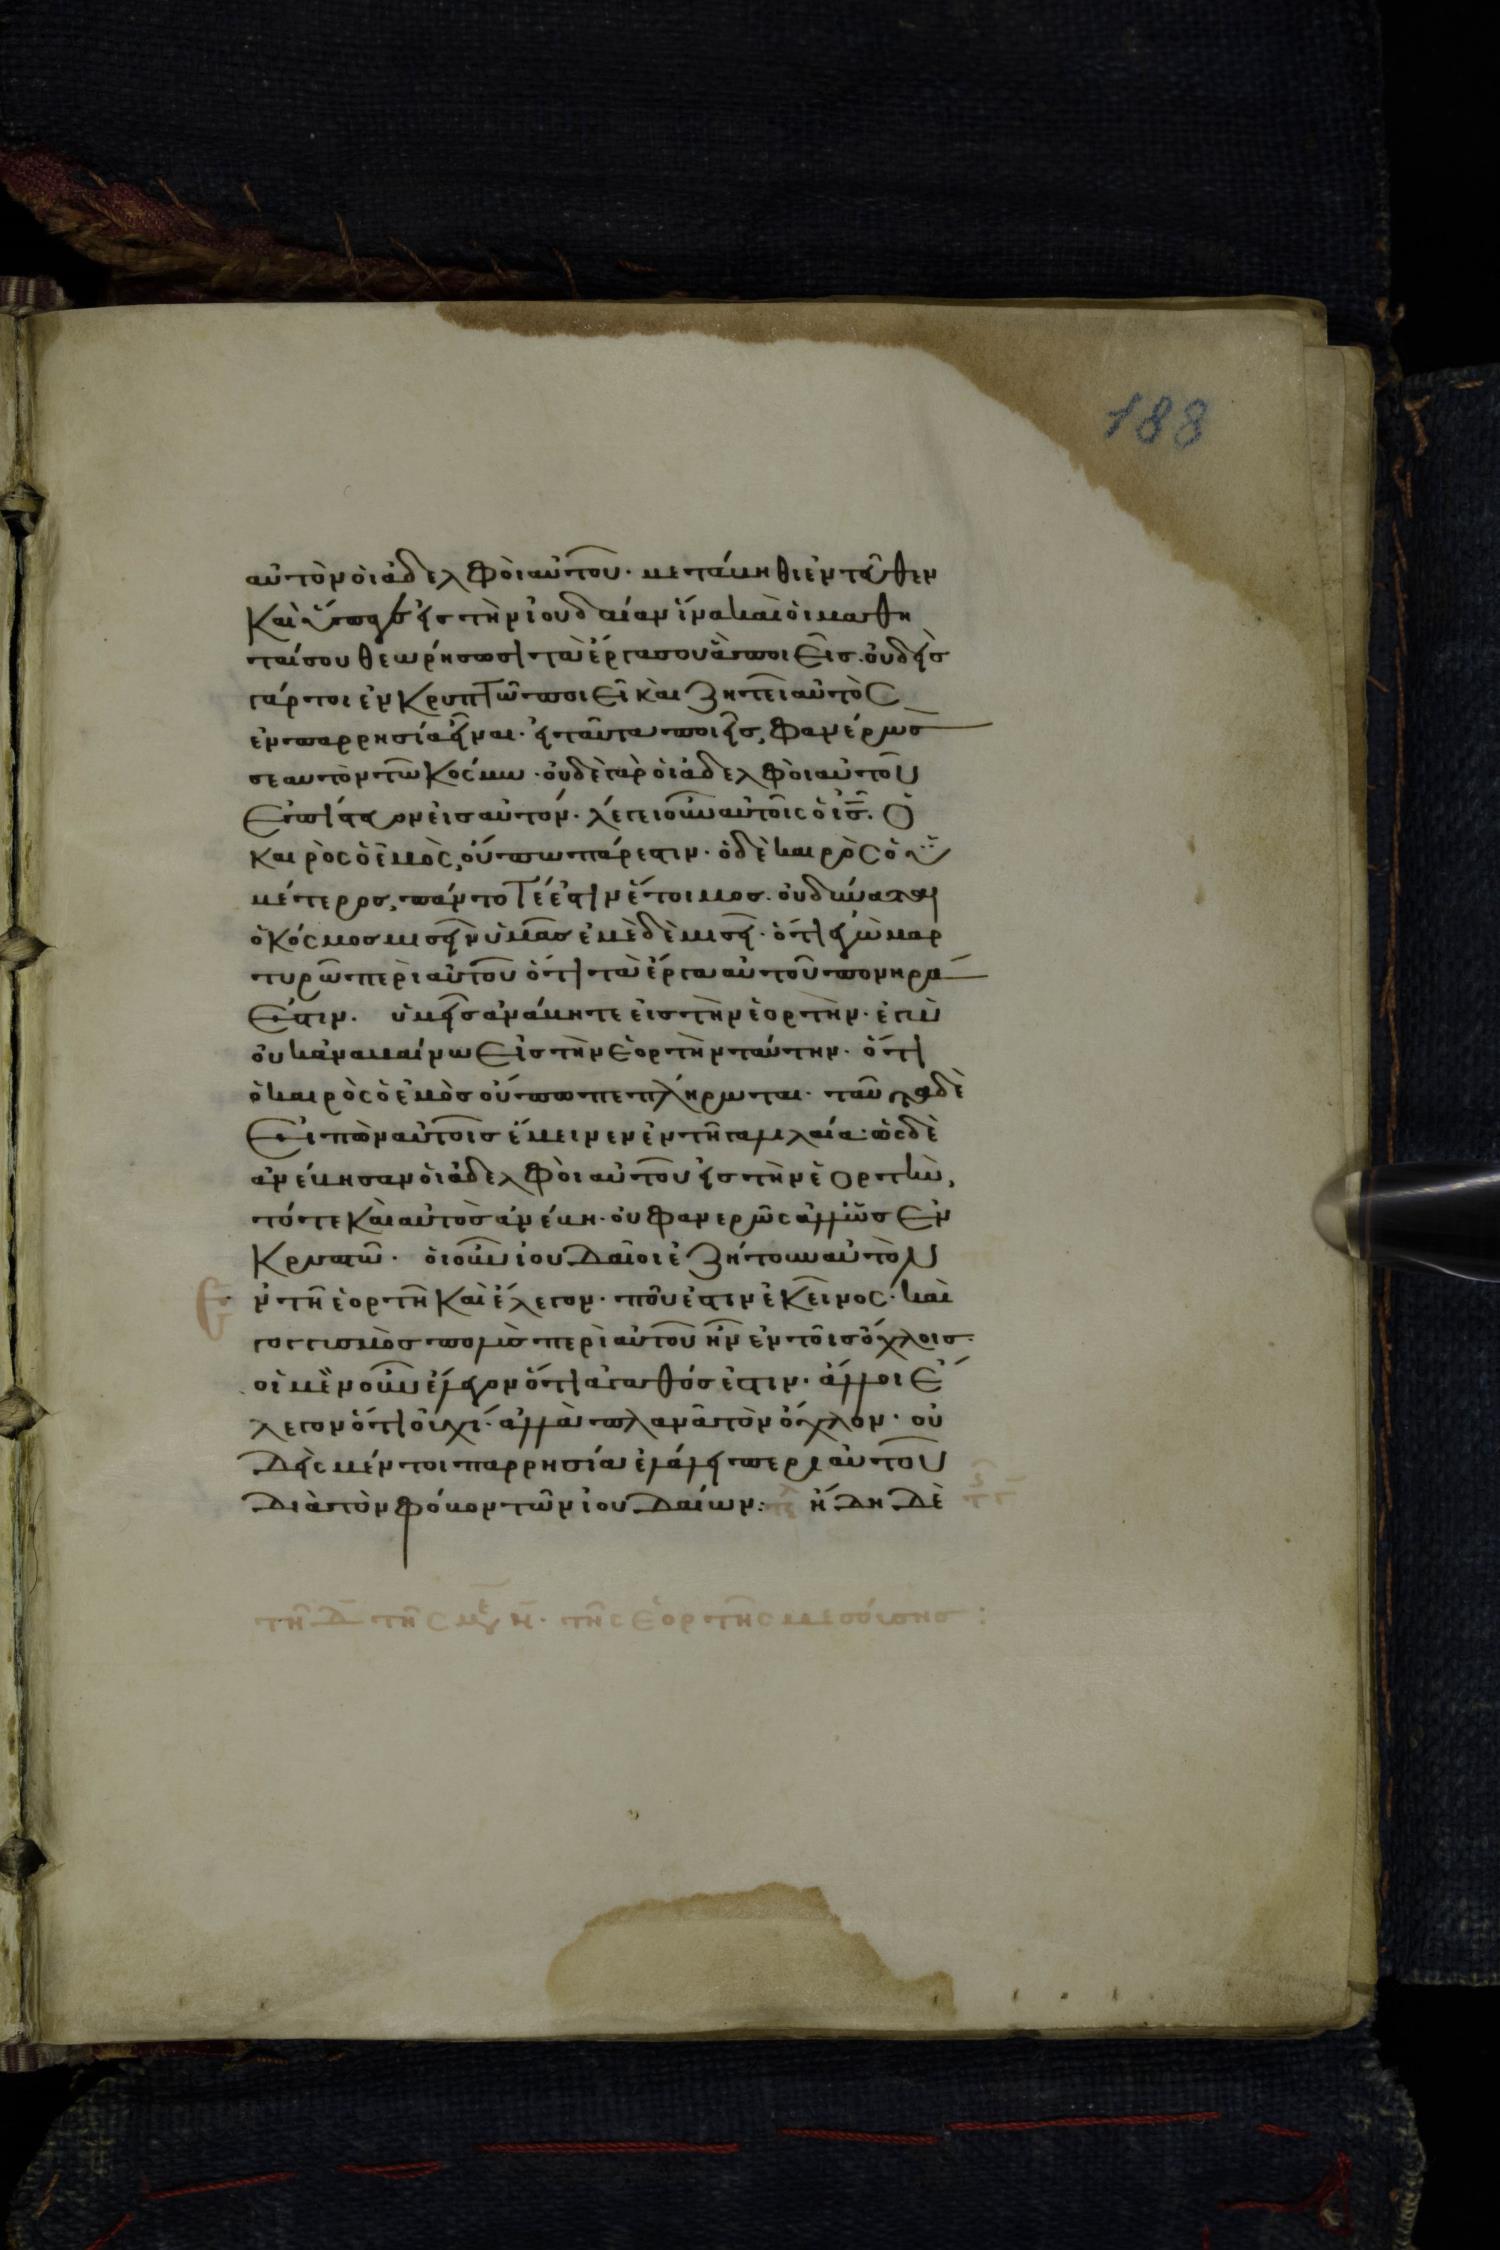 188
αὐτὸν οἱ ἀδελφοὶ αὐτοῦ· μετάβηθι ἐντεῦθεν
καὶ ὕπαγε εἰς τὴν ἰουδαίαν ἵνα καὶ οἱ μαθη
ταί σου θεωρήσωσι τὰ ἔργα σου ἃ ποιεῖς· οὐδεὶς
γάρ τοι ἐν κρυπτῶ ποιεῖ καὶ ζητεῖ αὐτὸς
ἐν παρρησία εἶναι· εἰ ταῦτα ποιεῖς, φανέρωσ
σεαυτὸν τῶ κόσμω· οὐδὲ γὰρ οἱ ἀδελφοὶ αὐτοῦ
ἐπίστευον εἰς αὐτόν· λέγει οὖν αὐτοῖς ὁ ἰς̅· Ὁ
καιρὸς ὁ ἐμὸς, οὔπω πάρεστιν· ὁ δὲ καιρὸς ὁ ὑ
μέτερος, πάντοτέ ἐστιν ἕτοιμος· οὐ δύναται
ὁ κόσμος μισεῖν ὑμᾶς ἐμὲ δὲ μισεῖ· ὅτι ἐγὼ μαρ
τυρῶ περὶ αὐτοῦ ὅτι τὰ ἔργα αὐτοῦ πονηρά
ἐστιν· ὑμεῖς ἀνάβητε εἰς τὴν ἑορτὴν· ἐγὼ
οὐκ ἀναβαίνω εἰς τὴν ἑορτὴν ταύτην· ὅτι
ὁ καιρὸς ὁ ἐμὸς οὔπω πεπλήρωται· ταῦτα δὲ
εἰπὼν αὐτοῖς ἔμεινεν ἐν τῆ γαλιλαία: ὡς δὲ
ἀνέβησαν οἱ ἀδελφοὶ αὐτοῦ εἰς τὴν ἑορτὴν,
τότε καὶ αὐτὸς ἀνέβη· οὐ φανερῶς ἀλλ' ὡς ἐν
κρυπτῶ· οἱ οὖν ἰουδαῖοι ἐζήτουν αὐτὸν
ἐν τῆ ἑορτῆ καὶ ἔλεγον· ποῦ ἐστιν ἐκεῖνος· καὶ
γογγυσμὸς πολὺς περὶ αὐτοῦ ἦν ἐν τοῖς ὄχλοις·
οἱ μὲν οὖν ἔλεγον ὅτι ἀγαθός ἐστιν· ἄλλοι ἔ
λεγον ὅτι οὐχί· ἀλλὰ πλανᾶ τὸν ὄχλον· οὐ
δεὶς μέντοι παρρησία ἐλάλει περὶ αὐτοῦ
διὰ τὸν φόβον τῶν ἰουδαίων: ἤδη δὲ
τῆ δ̅ τῆς ν· τῆς ἑορτῆς μεσούσης: